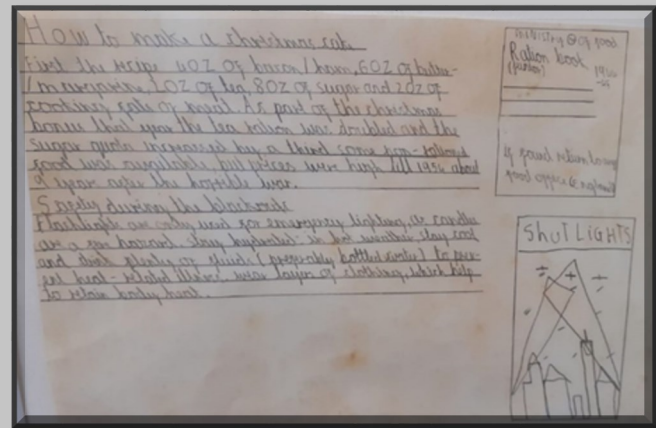 How to make a christmas cake
First the recipe 4OZ of bacon/ham, 6OZ of butter-
/margarine, 2OZ of tea, 8OZ of sugar and 2OZ of
cooking fats or . As part of the christmas
bonus that year the tea ration was doubled and the
sugar quota increased by a third some non-rationed
food was available, but prices were high till 1954 about
9 year after the horrible war.
Safety during the blackouts
Flashlights are only used for emergency lighting, as candles
are a hazard. stay hydrated in hot weather stay cool
and drink plenty of fluids (preferably bottled water) to prev-
ent heat-related illness. wear layers of clothing, which help
to retain body heat.
ministry Of food
Ration book
(junior)
if found return to any
food office
Shut LIGHTS